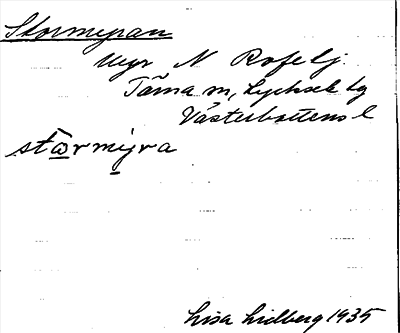 Stormyran
Myr N Roselj.
Tärna sn, Lycksele tg
Västerbottens l
stω̄rmyra
Lisa Lidberg 1935